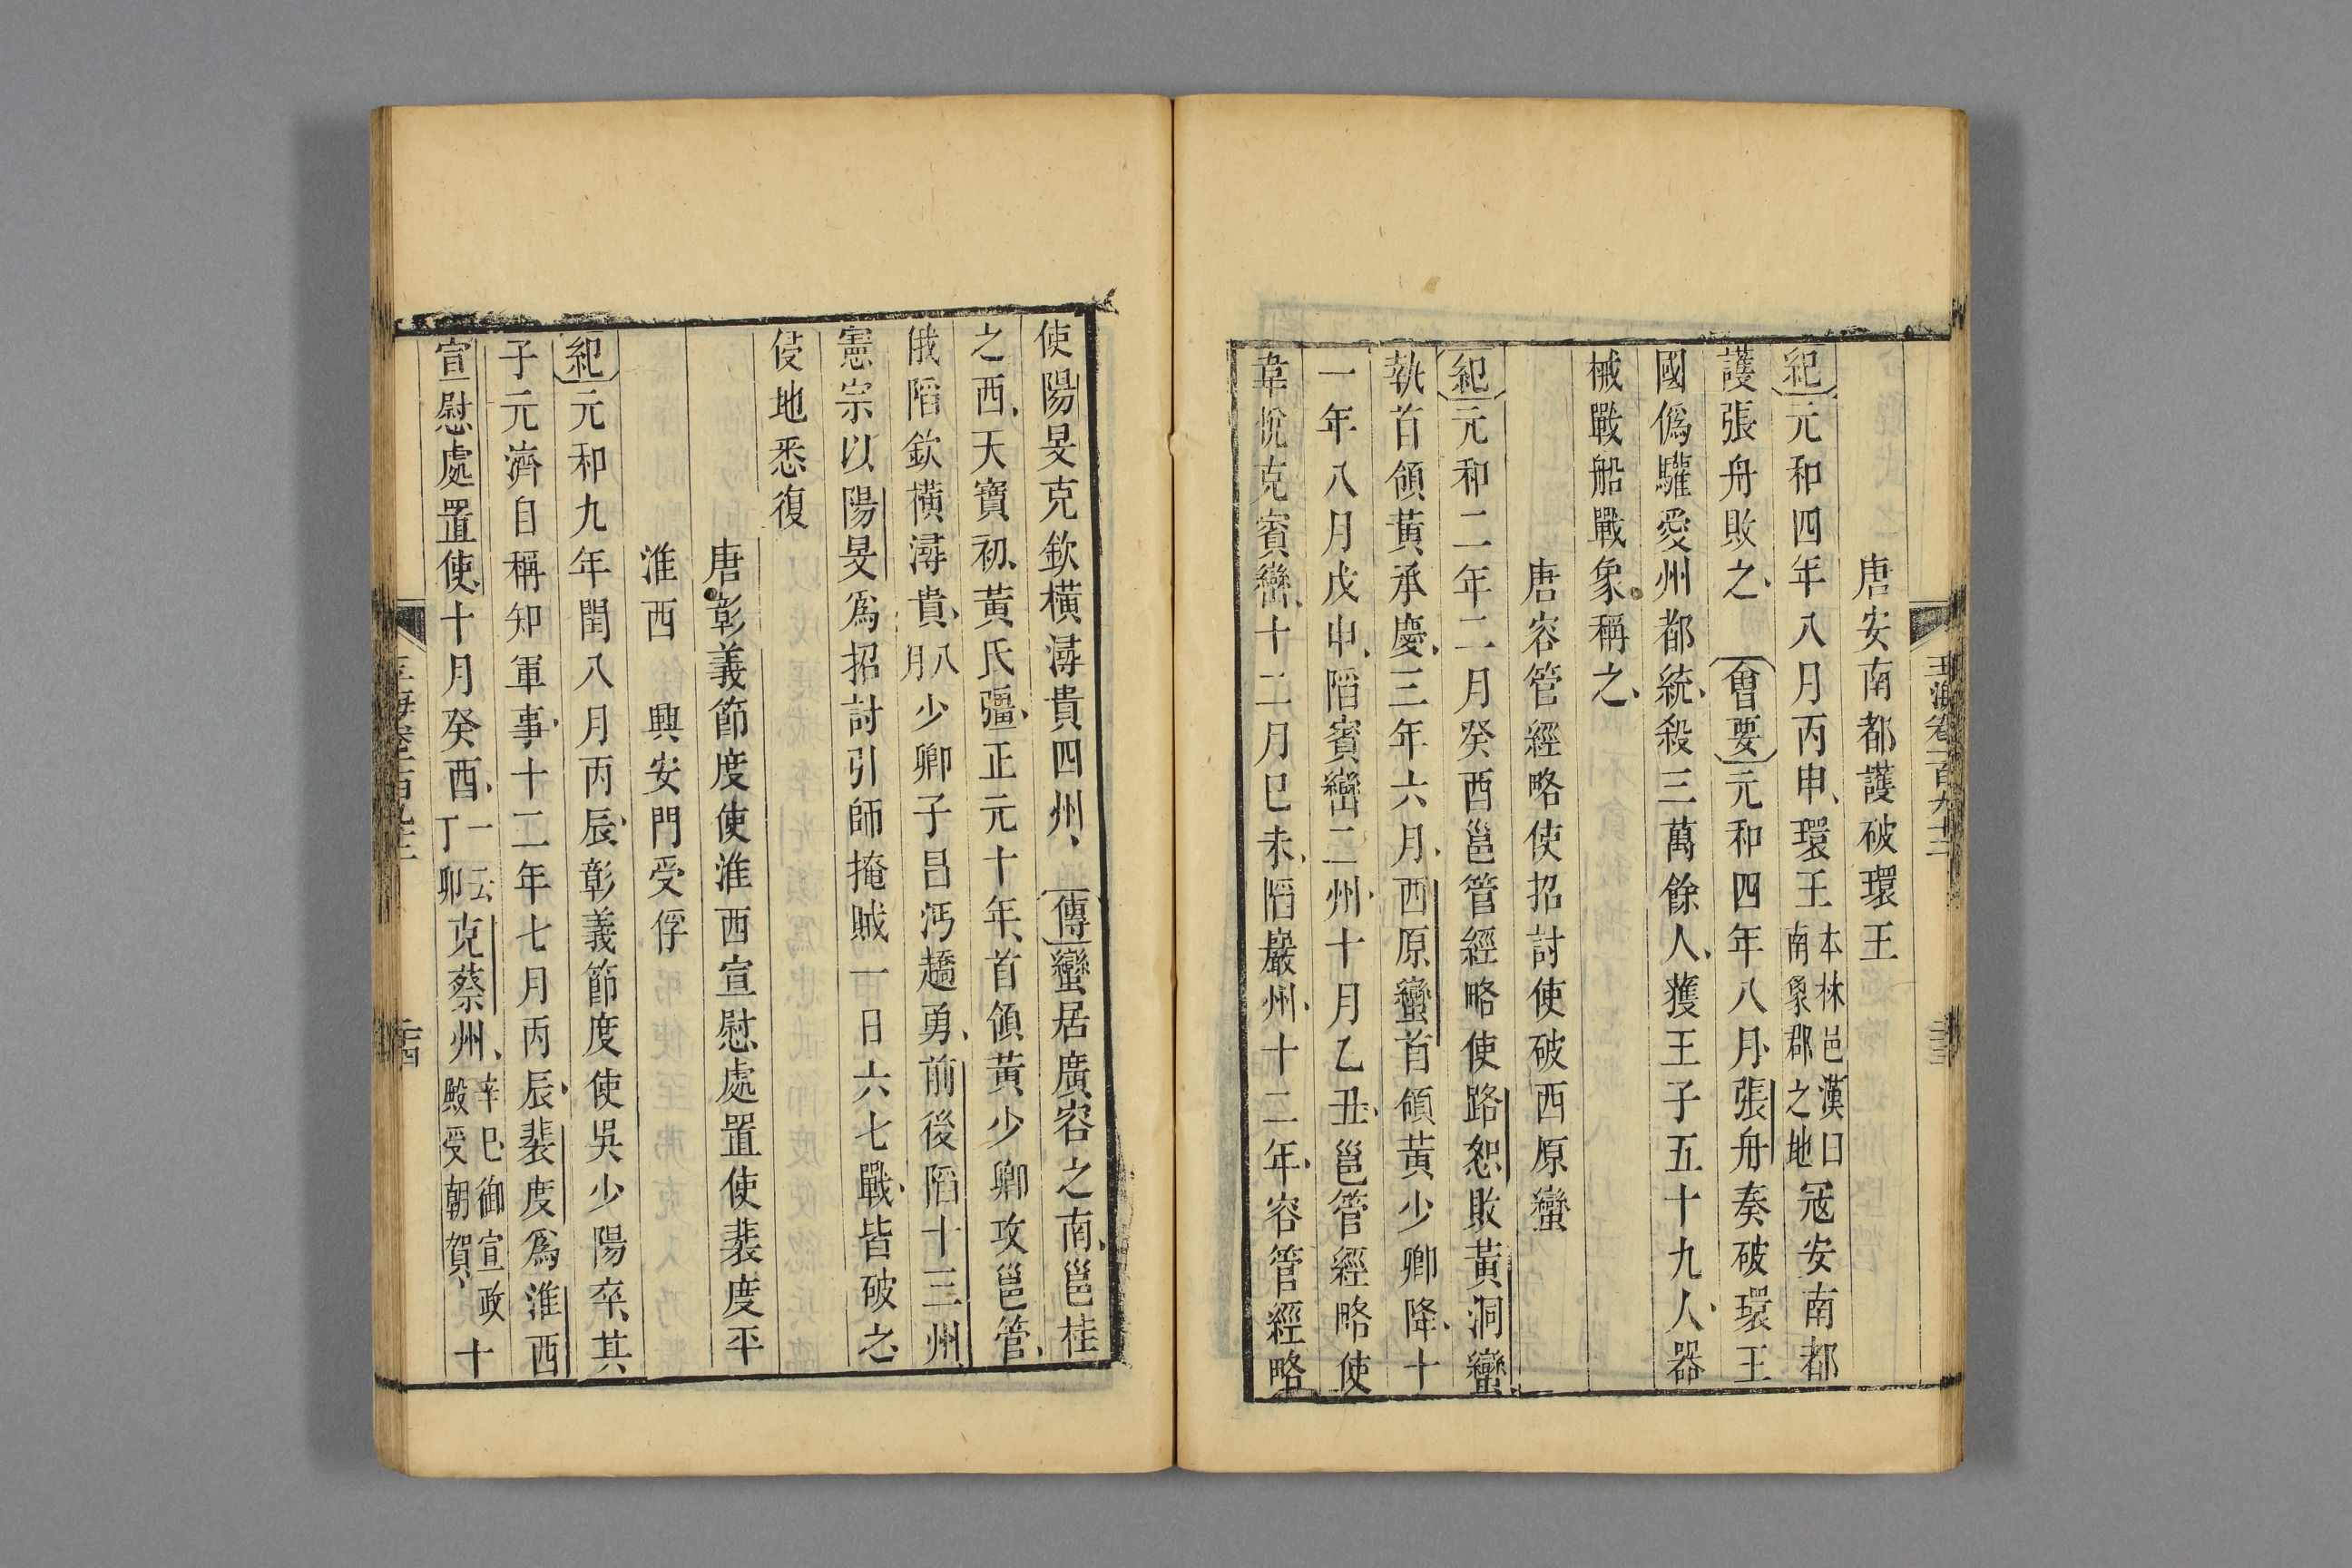 唐安南都護破環王
紀元和四年八月丙申環王本林邑漢日南象郡之地冦安南都
護張舟敗之 會要元和四年八月張舟奏破環王
國僞驩愛州都統殺三萬餘人獲王子五十九人器
械戰船戰象稱之
唐容管經略使招討使破西原蠻
紀元和二年二月癸酉邕管經略使路恕敗黃洞蠻
執首領黃承慶三年六月西原蠻首領黃少卿降十
一年八月戊申陷賓巒二州十月乙丑邕管經略使
韋悅克賓巒十二月巳未陷巖州十二年容管經略
使陽旻克欽橫潯貴四州 傳蠻居廣容之南邕桂
之西天寶初黃氏彊正元十年首領黃少卿攻邕管
俄陷欽橫潯貴八月少卿子昌沔趫勇前後陷十三州
憲宗以陽旻爲招討引師掩賊一日六七戰皆破之
侵地悉復
唐彰義節度使淮西宣慰處置使裴度平
淮西 興安門受俘
紀元和九年閏八月丙辰彰義節度使吳少陽卒其
子元濟自稱知軍事十二年七月丙辰裴度爲淮西
宣慰處置使十月癸酉一云丁卯克蔡州辛巳御宣政殿受朝賀十
玉海卷一百九十